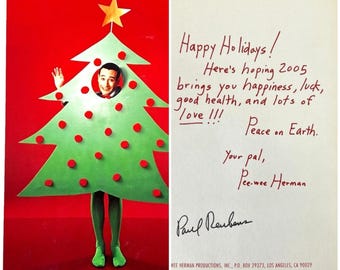 Happy Holidays!
Here's hoping 2005
brings you happiness, luck,
good health, and lots of
love!!!
Peace on Earth.
Your pal,
Pee-wee Herman
Paul Reubens
WEE HERMAN PRODUCTIONS, INC., P.O. BOX 29373, LOS ANGELES, CA 90029